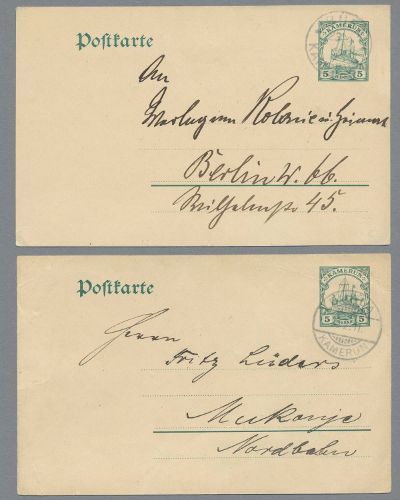 Postkarte
KAMERUN
5 5
An
Verlag von Kolonie u. Heimat
Berlin W. 66.
Wilhelmstr. 45.
Postkarte
KAMERUN
5 5
KAMERUN
Herrn
Fritz Lüders
Mukonje
Nordbahn